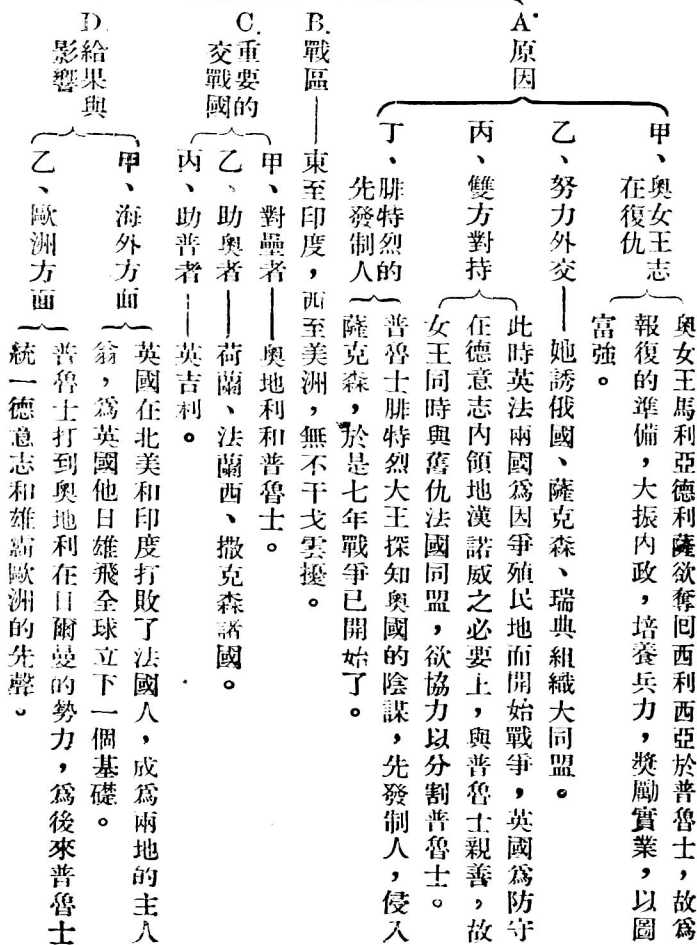 A.原因
甲、奧女王志
在復仇
奧女王馬利亞德利薩欲奪回西利西亞於普魯士，故爲
報復的準備，大振內政，培養兵力，獎勵實業，以圖
富強。
乙、努力外交——她誘俄國、薩克森、瑞典組織大同盟。
丙、雙方對持
此時英法兩國爲因爭殖民地而開始戰爭，英國爲防守
在德意志內領地漢諾威之必要上，與普魯士親善，故
女王同時與舊仇法國同盟，欲協力以分割普魯士。
丁、腓特烈的
先發制人
普魯士腓特烈大王探知奧國的陰謀，先發制人，侵入
薩克森，於是七年戰爭已開始了。
B.戰區——東至印度，西至美洲，無不干戈雲擾。
C.重要的
交戰國
甲、對壘者——奧地利和普魯士。
乙、助奧者——荷蘭、法蘭西、撒克森諸國。
丙、助普者——英吉利。
D.給果與
影響
甲、海外方面
英國在北美和印度打敗了法國人，成爲兩地的主人
翁，爲英國他日雄飛全球立下一個基礎。
乙、歐洲方面
普魯士打到奧地利在日爾曼的勢力，爲後來普魯士
統一德意志和雄霸歐洲的先聲。